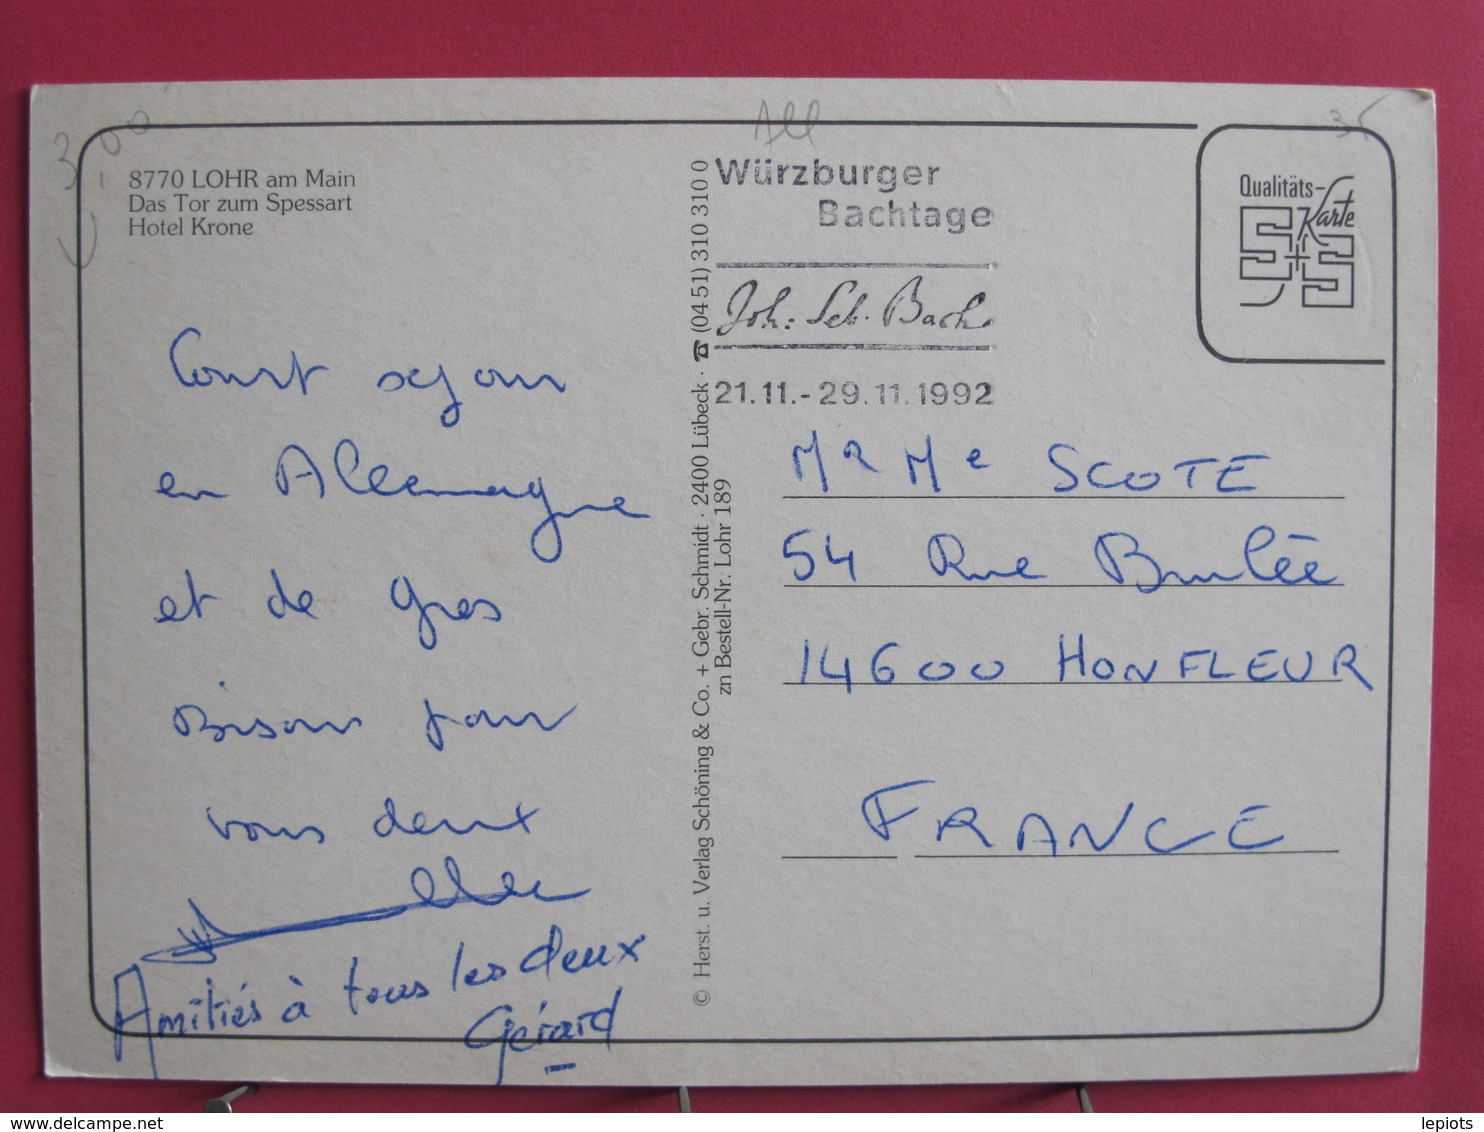 3,00
All
35
8770 LOHR am Main
Das Tor zum Spessart
Hotel Krone
Court sejour
en Allemagne
et de gros
Bisous pour
vous deux
Amitiés à tous les deux
Gérard
© Herst. u. Verlag Schöning & Co. + Gebr. Schmidt · 2400 Lübeck · ☎ (04 51) 310 310 0
zn Bestell-Nr. Lohr 189
Würzburger
Bachtage
Joh. Seb. Bach
21.11.-29.11.1992
Qualitäts-
Karte
S+S
Mr Me SCOTE
54 Rue Brulée
14600 HONFLEUR
FRANCE
www.delcampe.net
lepiots